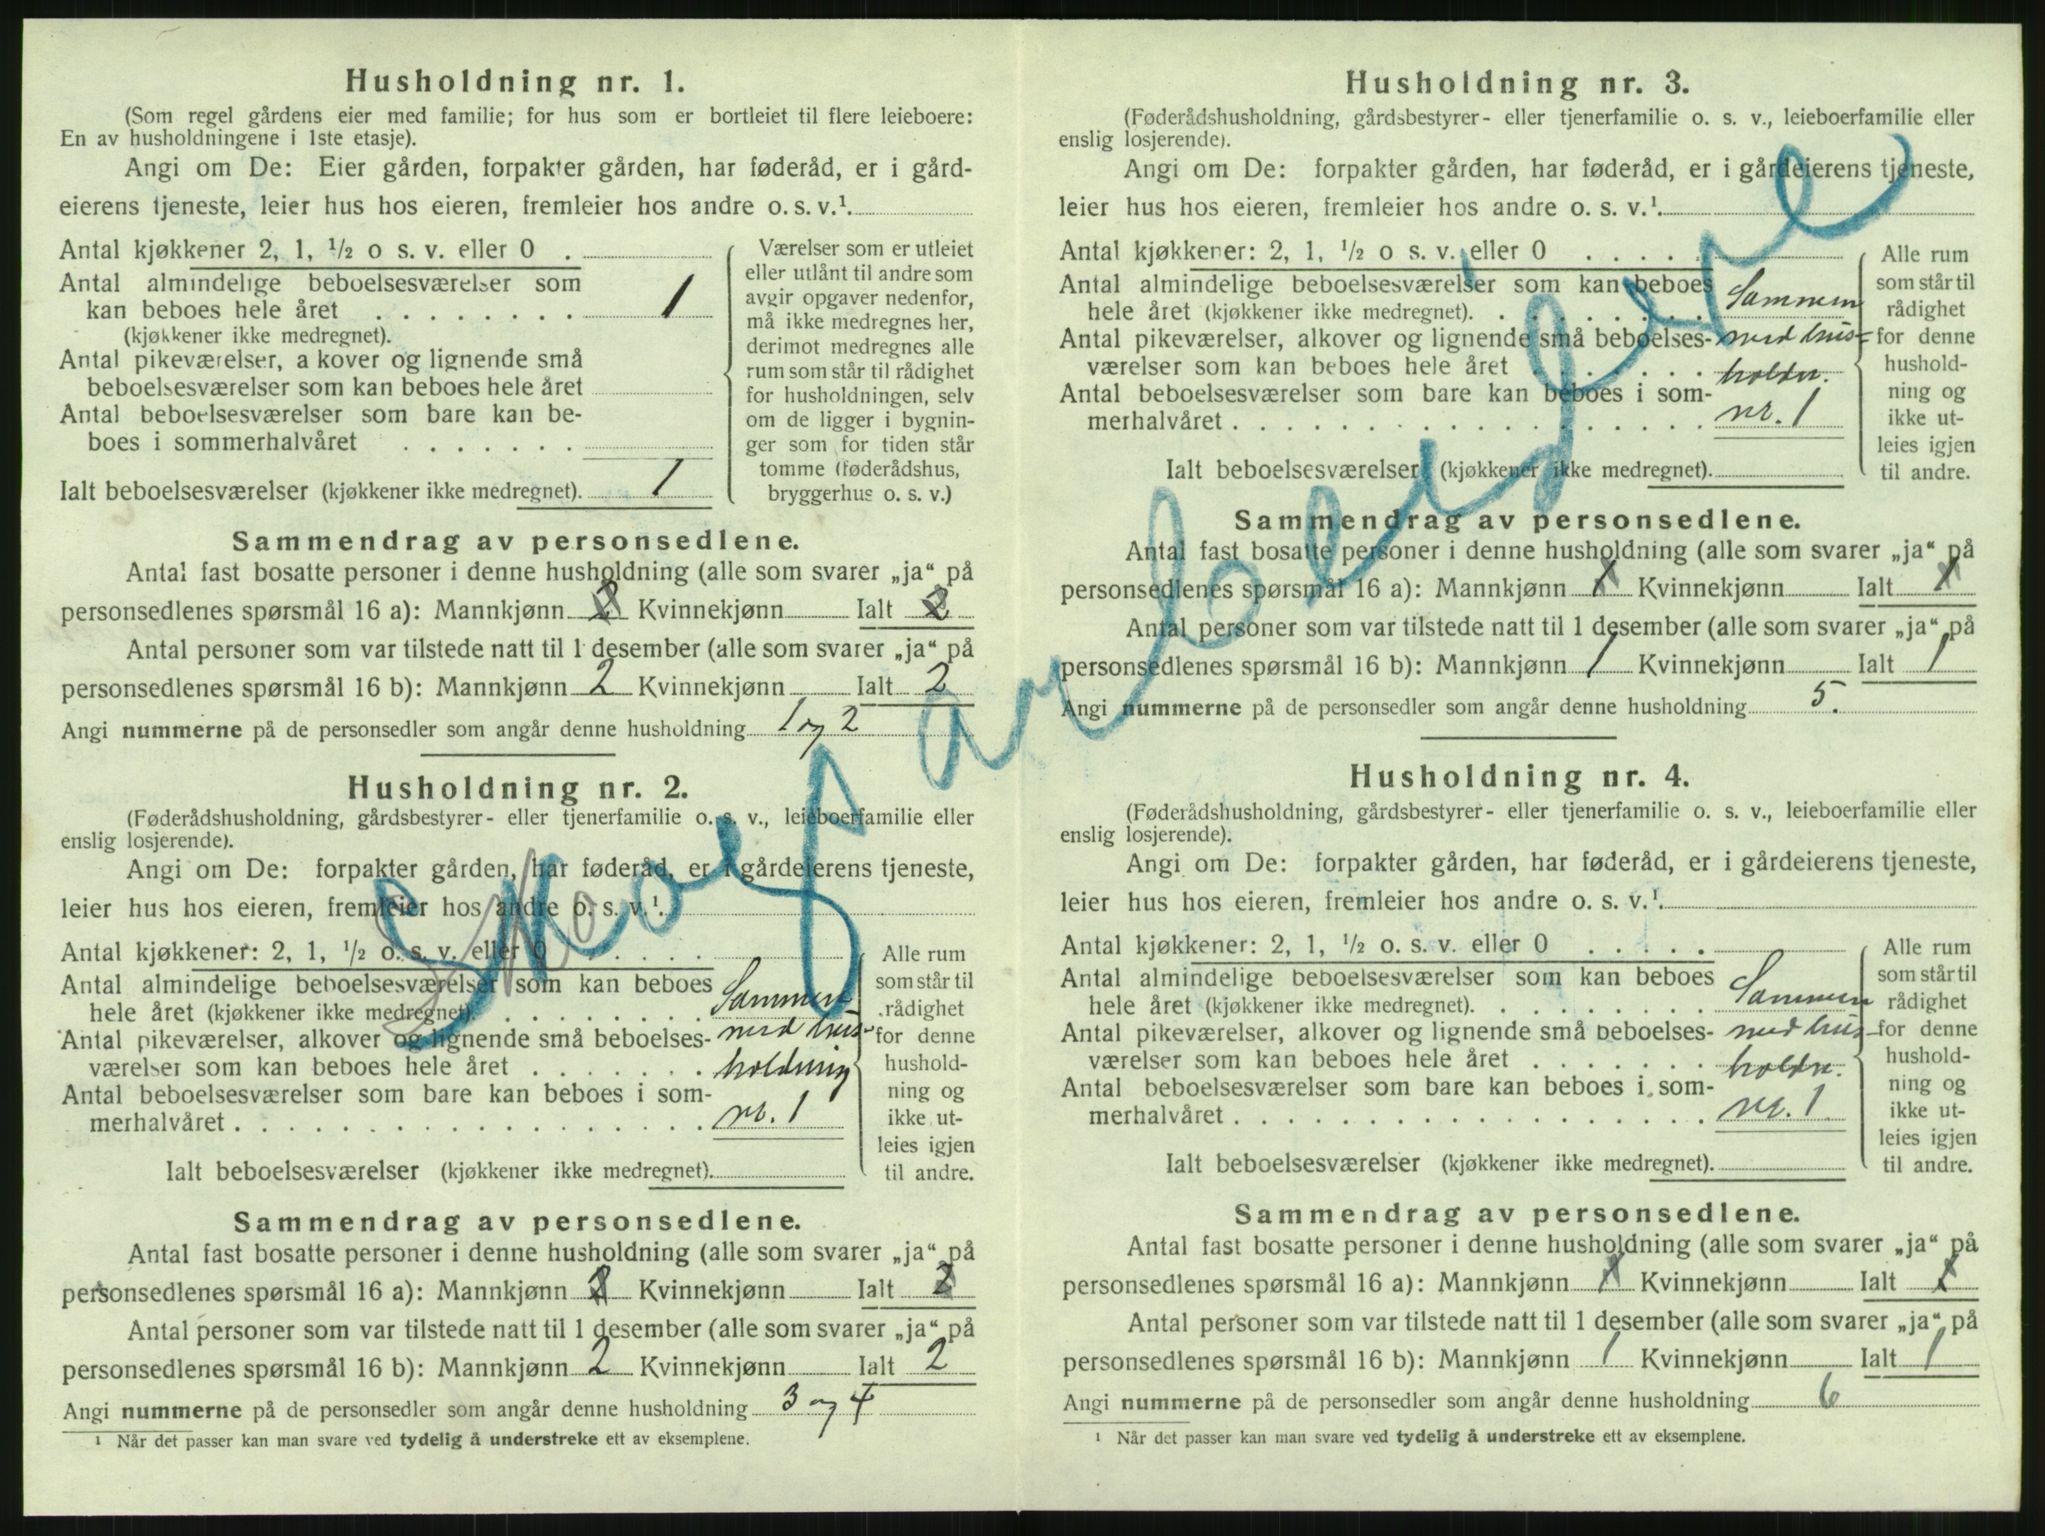 Husholdning nr. 1.
(Som regel gårdens eier med familie; for hus som er bortleiet til flere leieboere:
En av husholdningene i 1ste etasje).
Angi om De: Eier gården, forpakter gården, har føderåd, er i gård-
eierens tjeneste, leier hus hos eieren, fremleier hos andre o. s. v.¹.
Antal kjøkkener 2, 1, ½ o s. v. eller 0 .
Antal almindelige beboelsesværelser som
kan beboes hele året . . . . . . . . 1
(kjøkkener ikke medregnet).
Antal pikeværelser, a kover og lignende små
beboelsesværelser som kan beboes hele året
Antal beboelsesværelser som bare kan be-
boes i sommerhalvåret . . . . . . .
Ialt beboelsesværelser (kjøkkener ikke medregnet). 1
Værelser som er utleiet
eller utlånt til andre som
avgir opgaver nedenfor,
må ikke medregnes her,
derimot medregnes alle
rum som står til rådighet
for husholdningen, selv
om de ligger i bygnin-
ger som for tiden står
tomme (føderådshus,
bryggerhus o. s. v.)
Sammendrag av personsedlene.
Antal fast bosatte personer i denne husholdning (alle som svarer „ja“ på
personsedlenes spørsmål 16 a): Mannkjønn 2 Kvinnekjønn Ialt 2
Antal personer som var tilstede natt til 1 desember (alle som svarer „ja“ på
personsedlenes spørsmål 16 b): Mannkjønn 2 Kvinnekjønn Ialt 2
Angi nummerne på de personsedler som angår denne husholdning 1 og 2
Husholdning nr. 2.
(Føderådshusholdning, gårdsbestyrer- eller tjenerfamilie o. s. v., leieboerfamilie eller
enslig losjerende).
Angi om De: forpakter gården, har føderåd, er i gårdeierens tjeneste,
leier hus hos eieren, fremleier hos andre o. s. v.¹.
Antal kjøkkener: 2, 1, ½ o. s. v. eller 0 . . . . .
Antal almindelige beboelsesværelser som kan beboes
hele året (kjøkkener ikke medregnet). . . . . . . . . Sammen
Antal pikeværelser, alkover og lignende små beboelses- med hus-
værelser som kan beboes hele året . . . . . . . holdning
Antal beboelsesværelser som bare kan beboes i som-
merhalvåret . . . . . . . . . . . . . . . . . . nr. 1
Ialt beboelsesværelser (kjøkkener ikke medregnet).
Alle rum
som står til
rådighet
for denne
hushold-
ning og
ikke ut-
leies igjen
til andre.
Sammendrag av personsedlene.
Antal fast bosatte personer i denne husholdning (alle som svarer „ja“ på
personsedlenes spørsmål 16 a): Mannkjønn 2 Kvinnekjønn Ialt 2
Antal personer som var tilstede natt til 1 desember (alle som svarer „ja“ på
personsedlenes spørsmål 16 b): Mannkjønn 2 Kvinnekjønn Ialt 2
Angi nummerne på de personsedler som angår denne husholdning 3 og 4
¹ Når det passer kan man svare ved tydelig å understreke ett av eksemplene.
Skogsarbeidere
Husholdning nr. 3.
(Føderådshusholdning, gårdsbestyrer- eller tjenerfamilie o. s. v., leieboerfamilie eller
enslig losjerende).
Angi om De: forpakter gården, har føderåd, er i gårdeierens tjeneste,
leier hus hos eieren, fremleier hos andre o. s. v.¹.
Antal kjøkkener: 2, 1, ½ o s. v. eller 0 . . . . .
Antal almindelige beboelsesværelser som kan beboes
hele året (kjøkkener ikke medregnet). . . . . . . . . Sammen
Antal pikeværelser, alkover og lignende små beboelses- med hus-
værelser som kan beboes hele året . . . . . . . holdn.
Antal beboelsesværelser som bare kan beboes i som-
merhalvåret . . . . . . . . . . . . . . . . . . nr. 1
Ialt beboelsesværelser (kjøkkener ikke medregnet).
Alle rum
som står til
rådighet
for denne
hushold-
ning og
ikke ut-
leies igjen
til andre.
Sammendrag av personsedlene.
Antal fast bosatte personer i denne husholdning (alle som svarer „ja“ på
personsedlenes spørsmål 16 a): Mannkjønn 1 Kvinnekjønn Ialt 1
Antal personer som var tilstede natt til 1 desember (alle som svarer „ja“ på
personsedlenes spørsmål 16 b): Mannkjønn 1 Kvinnekjønn Ialt 1
Angi nummerne på de personsedler som angår denne husholdning 5.
Husholdning nr. 4.
(Føderådshusholdning, gårdsbestyrer- eller tjenerfamilie o. s. v., leieboerfamilie eller
enslig losjerende).
Angi om De: forpakter gården, har føderåd, er i gårdeierens tjeneste,
leier hus hos eieren, fremleier hos andre o. s. v.¹.
Antal kjøkkener: 2, 1, ½ o. s. v. eller 0 . . . . .
Antal almindelige beboelsesværelser som kan beboes
hele året (kjøkkener ikke medregnet). . . . . . . . . Sammen
Antal pikeværelser, alkover og lignende små beboelses- med hus-
værelser som kan beboes hele året . . . . . . . holdn.
Antal beboelsesværelser som bare kan beboes i som-
merhalvåret . . . . . . . . . . . . . . . . . . nr. 1
Ialt beboelsesværelser (kjøkkener ikke medregnet).
Alle rum
som står til
rådighet
for denne
hushold-
ning og
ikke ut-
leies igjen
til andre.
Sammendrag av personsedlene.
Antal fast bosatte personer i denne husholdning (alle som svarer „ja“ på
personsedlenes spørsmål 16 a): Mannkjønn 1 Kvinnekjønn Ialt 1
Antal personer som var tilstede natt til 1 desember (alle som svarer „ja“ på
personsedlenes spørsmål 16 b): Mannkjønn 1 Kvinnekjønn Ialt 1
Angi nummerne på de personsedler som angår denne husholdning 6
¹ Når det passer kan man svare ved tydelig å understreke ett av eksemplene.